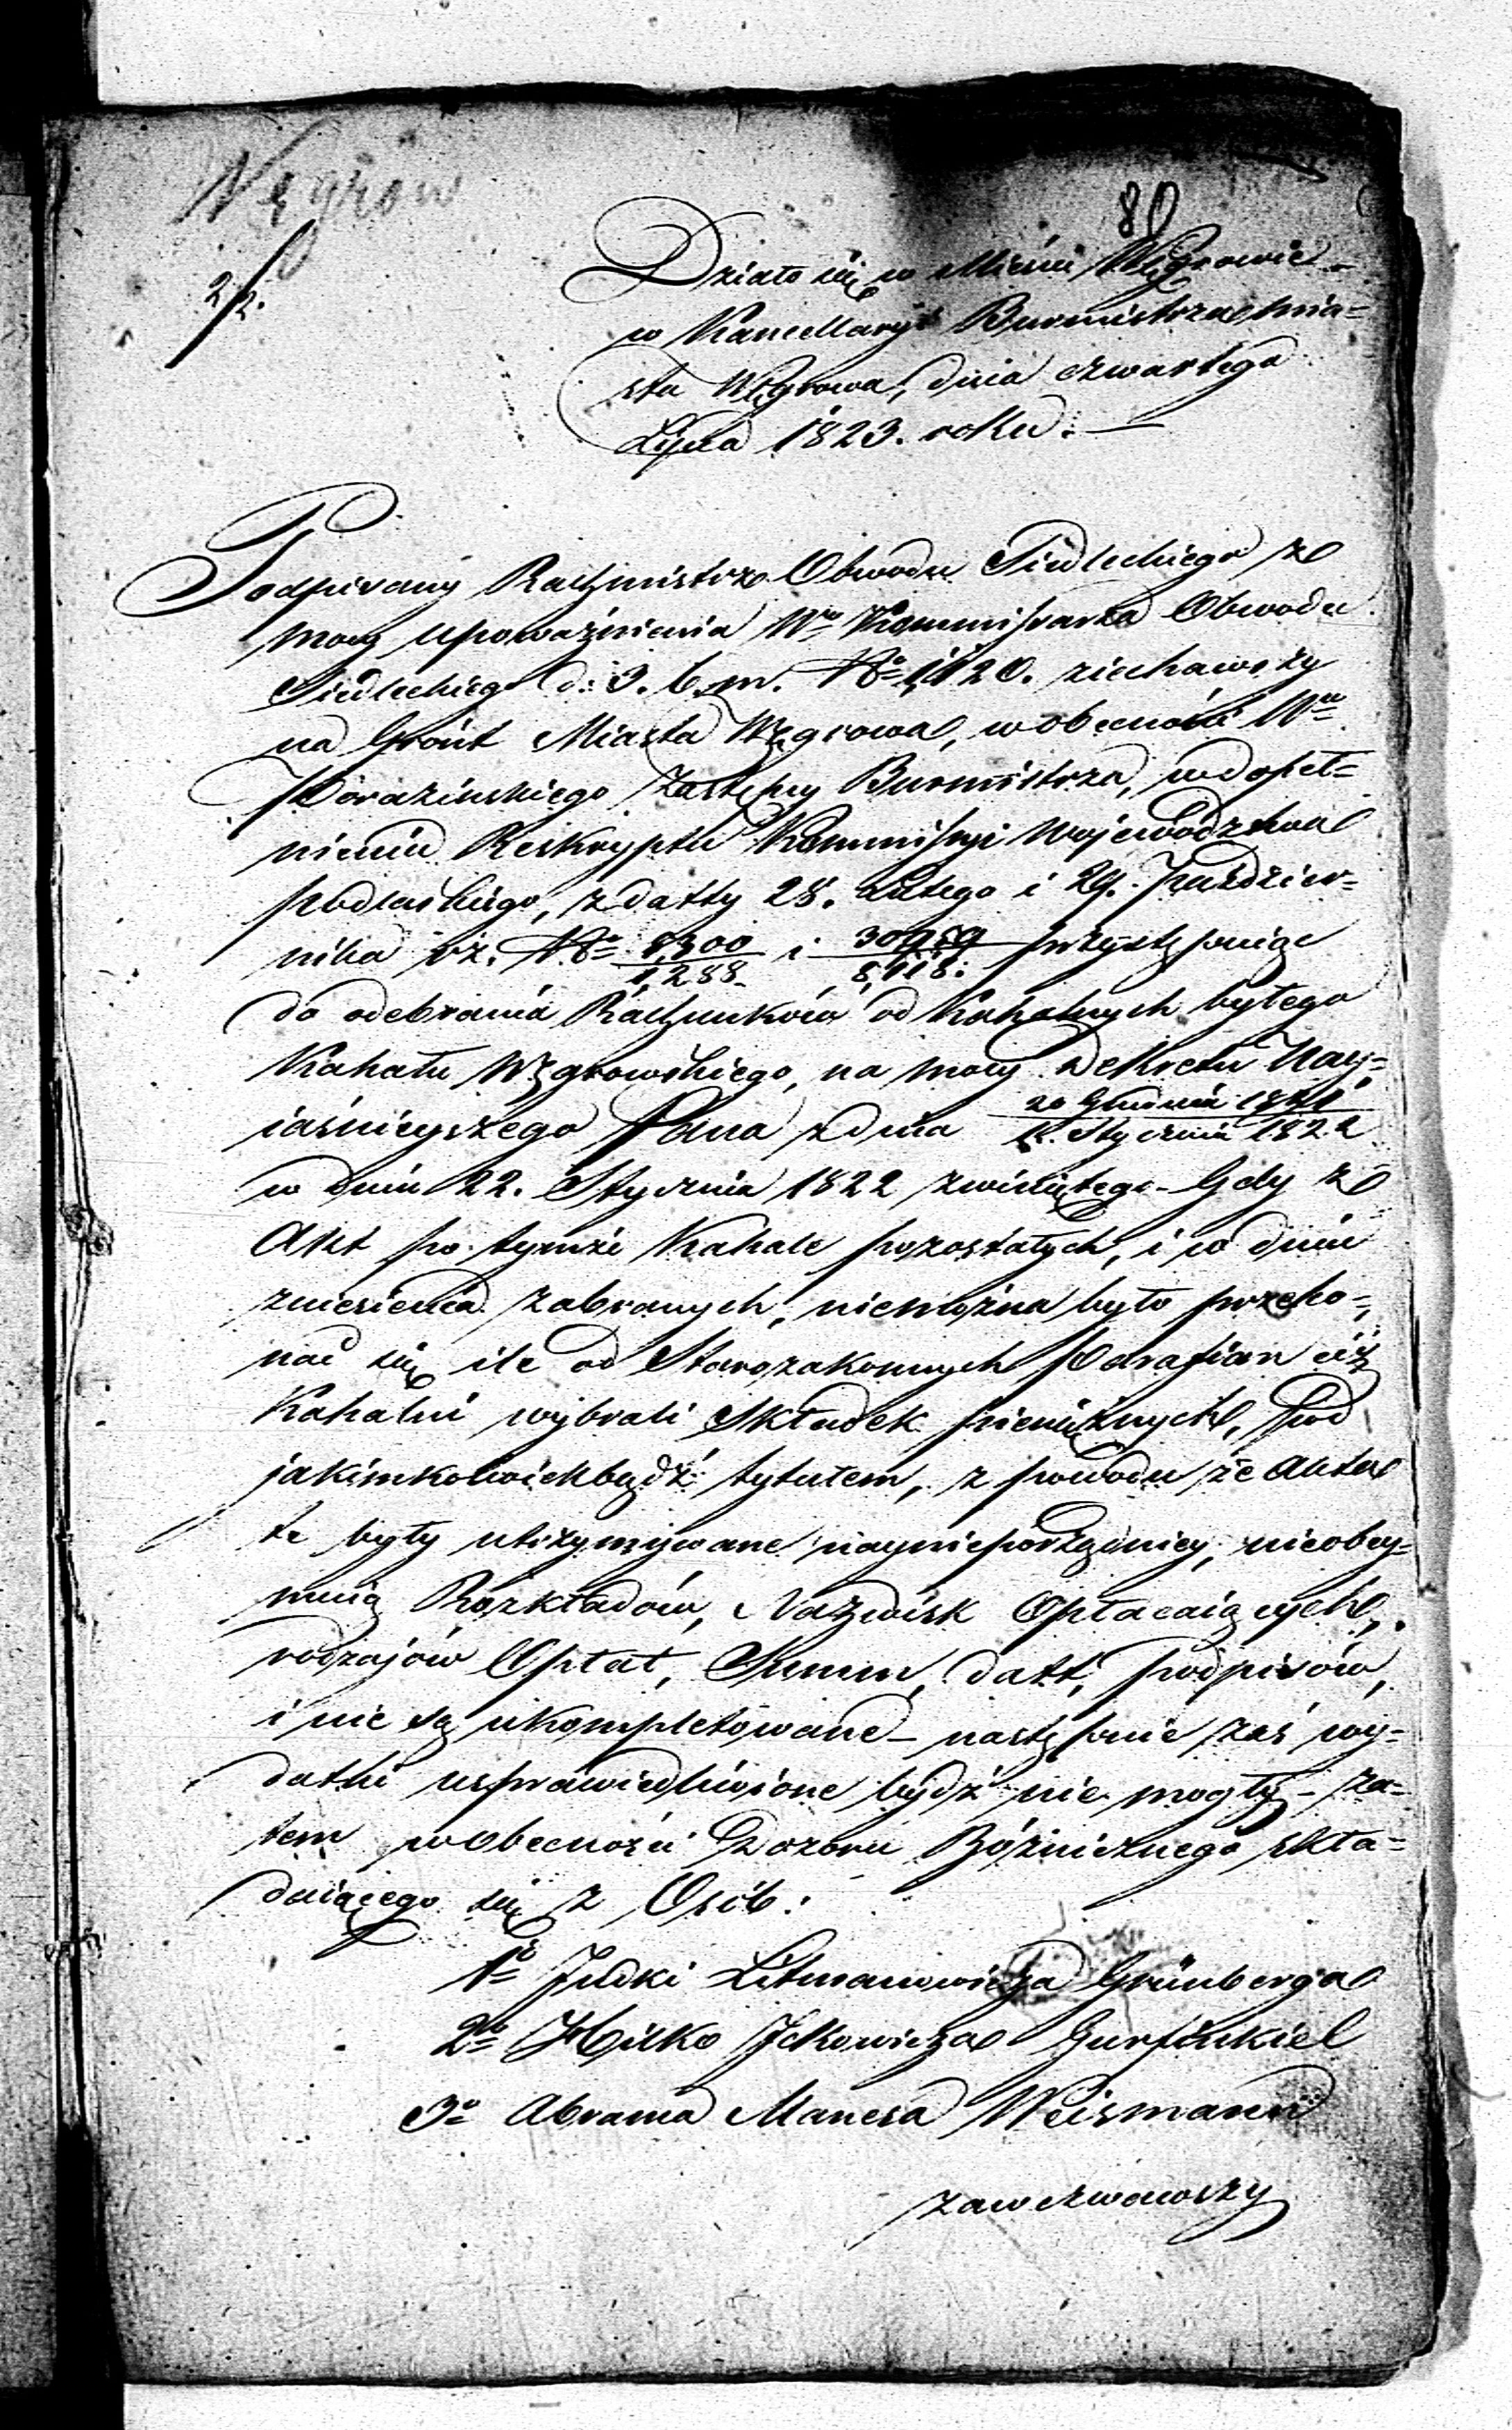 Węgrow
80
2/2.
Działo się w Mieście Węgrowie
w Kancellaryi Burmistrza mia=
sta Węgrowa, dnia czwartego
Lipca 1823. roku. —
Podpisany Rachmistrz Obwodu Siedleckiego z
mocy upoważnienia Wgo Kommissarza Obwodu
Siedleckiego d: 3. b. m. No 1120. ziechawszy
na Grónt Miasta Węgrowa, w obecności Wgo
Zastępcy Burmistrza, w dopeł=
nieniu Reskryptu Kommissyi Województwa
podlaskiego, z datty 28. Lutego i 29. Paździer=
nika rz. No 8300/1,288 i 30959/8,118: przystępuiąc
do odebrania Rachunków od Kahalnych byłego
Kahału Węgrowskiego, na mocy Dekretu Nay=
iaśnieyszego Pana z dnia 20 Grudnia 1821/1. Stycznia 1822
w dniu 22. Stycznia 1822 zwiniętego – Gdy z
Akt po tymże Kahale pozostałych, i w dniu
zniesienia zabranych, niemożna było przeko=
nać się ile od Starozakonnych Parafian ciż
Kahalni wybrali Składek pieniężnych, pod
jakimkolwiekbądź tytułem, z powodu że Akta
te były utrzymywane naynieporządniey, nieobey=
muią Rozkładów, Nazwisk Opłacaiących,
rodzajów Opłat, Summ, datt, podpisów,
i nie są ukompletowane – następnie zaś wy=
datki usprawiedliwione bydź nie mogły – za=
tem w obecności Dozoru Bóżnicznego skła=
daiącego się z Osób:
1o Judki Litmanowicza Grünberga
2o Hilko Ickowicza Gurfinkiel
3o Abrama Manesa Weismann
zawezwawszy